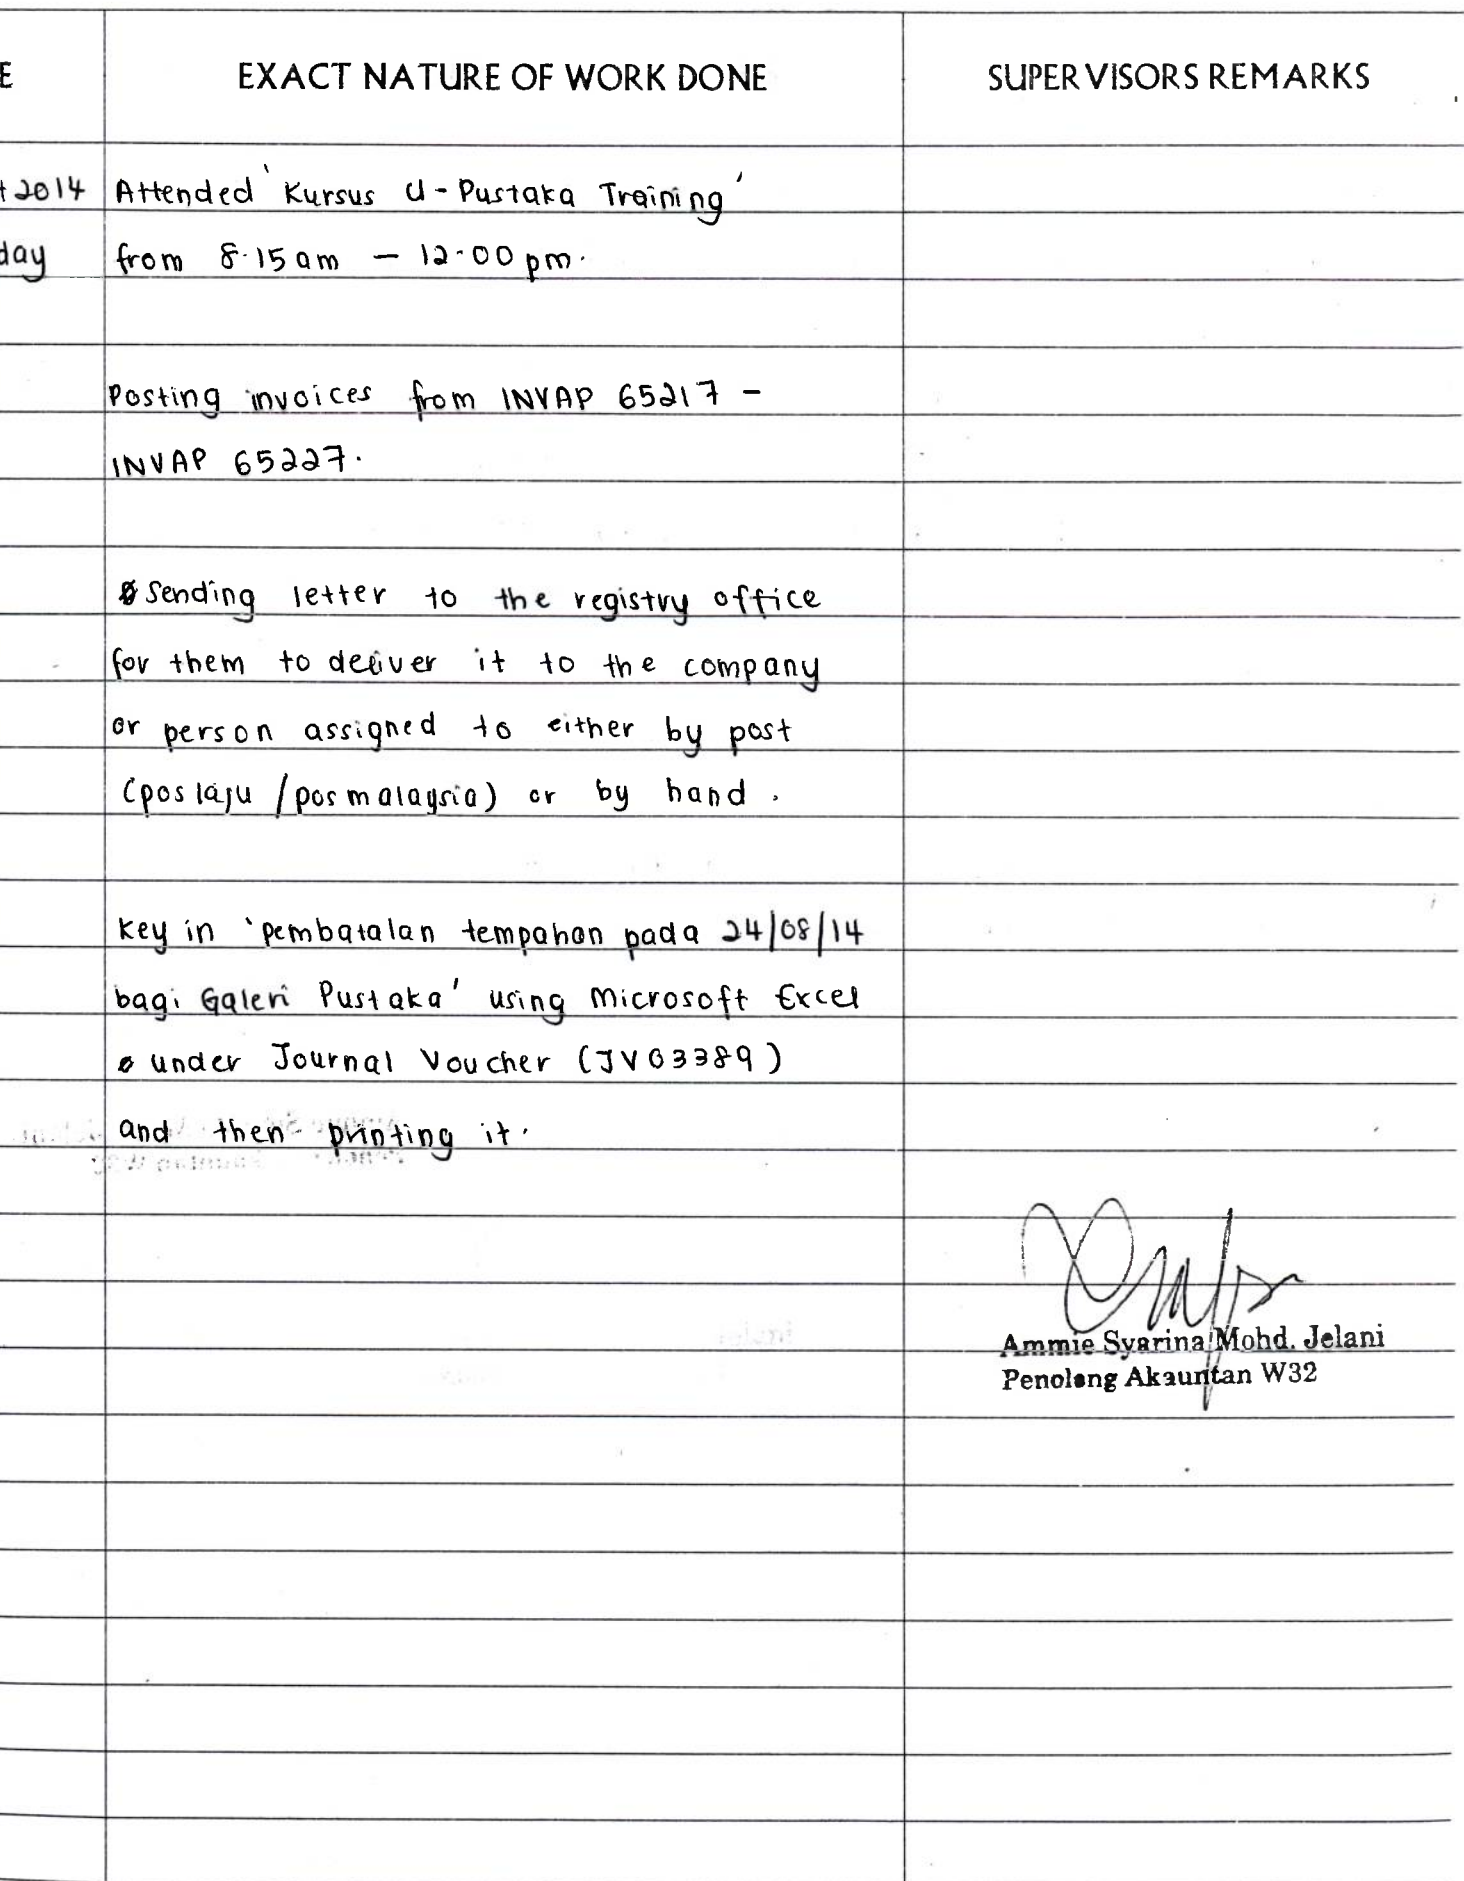 E EXACT NATURE OF WORK DONE SUPERVISORS REMARKS
t 2014 Attended 'Kursus U-Pustaka Training'
day from 8.15am - 12.00pm.
Posting invoices from INVAP 65217 -
INVAP 65227.
Sending letter to the registry office
for them to deliver it to the company
or person assigned to either by post
(pos laju / pos malaysia) or by hand.
Key in 'pembatalan tempahan pada 24/08/14
bagi Galeri Pustaka' using Microsoft Excel
under Journal Voucher (JV03389)
and then printing it.
Ammie Syarina Mohd. Jelani
Penolong Akauntan W32